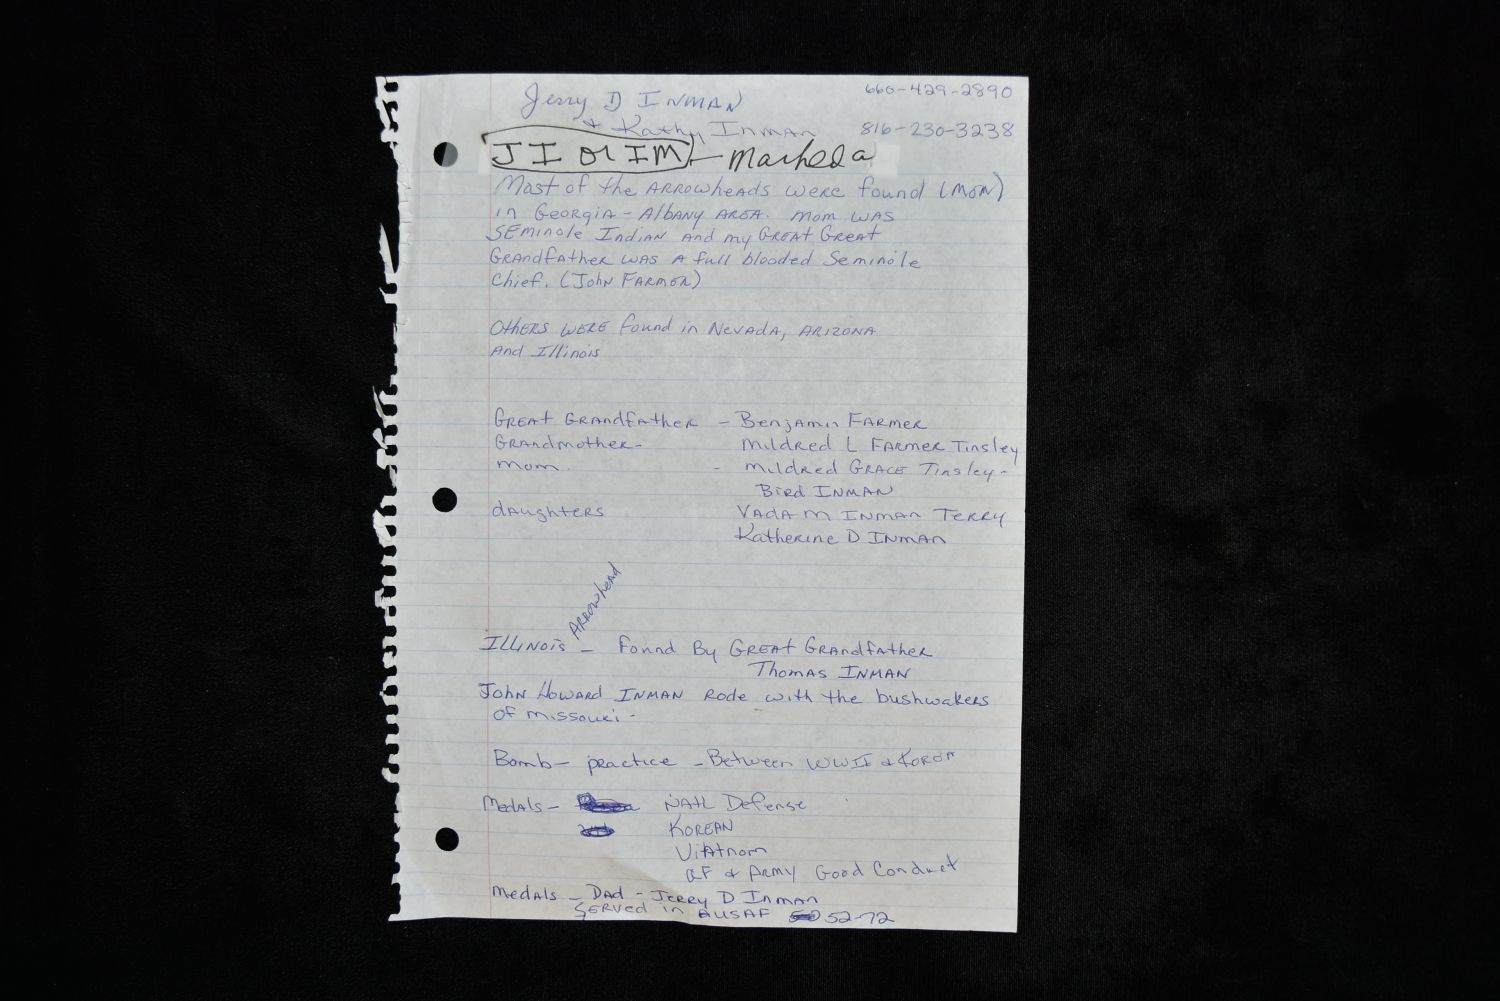 Jerry D Inman 660-429-2890
& Kathy Inman 816-230-3238
JI or IM - marked a
Most of the Arrowheads were found (Mom)
in Georgia - Albany Area. Mom was
Seminole Indian and my Great Great
Grandfather was a full blooded Seminole
Chief. (John Farmer)
Others were found in Nevada, Arizona
And Illinois
Great Grandfather - Benjamin Farmer
Grandmother - Mildred L Farmer Tinsley
Mom - Mildred Grace Tinsley -
Bird Inman
daughters Vada M Inman Terry
Katherine D Inman
Arrowhead
Illinois - Found By Great Grandfather
Thomas Inman
John Howard Inman Rode with the bushwakers
of Missouri -
Bomb - practice - Between WWII & Korea
Medals - Natl Defense
Korean
Viatnom
AF & Army Good Conduct
Medals - Dad - Jerry D Inman
Served in AUSAF 52-72